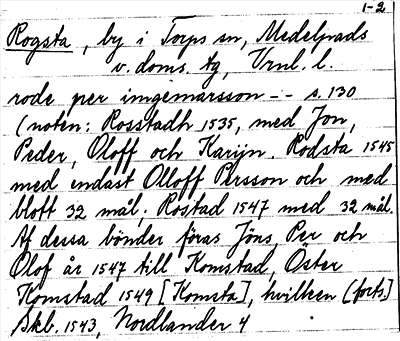 1-2
Rogsta, by i Torps sn, Medelpads
v. doms. tg, Vrnl. l.
rode per imgemarsson - - s. 130
(noten: Rosstadh 1535, med Jon,
Peder, Oloff och Karijn. Rodsta 1545
med endast Olloff Persson och med
blott 32 mål; Rostad 1547 med 32 mål.
Af dessa bönder föras Jöns, Per och
Olof år 1547 till Komstad, Öster
Komstad 1549 [Komsta], hvilken (forts.)
Skb. 1543, Nordlander 4